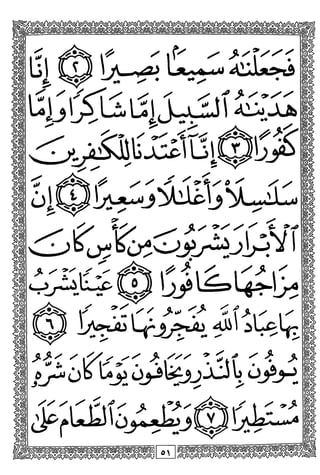 فَجَعَلْنَٰهُ سَمِيعًۢا بَصِيرًا ٢ إِنَّا
هَدَيْنَٰهُ ٱلسَّبِيلَ إِمَّا شَاكِرًا وَإِمَّا
كَفُورًا ٣ إِنَّآ أَعْتَدْنَا لِلْكَٰفِرِينَ
سَلَٰسِلَا۟ وَأَغْلَٰلًا وَسَعِيرًا ٤ إِنَّ
ٱلْأَبْرَارَ يَشْرَبُونَ مِن كَأْسٍ كَانَ
مِزَاجُهَا كَافُورًا ٥ عَيْنًا يَشْرَبُ
بِهَا عِبَادُ ٱللَّهِ يُفَجِّرُونَهَا تَفْجِيرًا ٦
يُوفُونَ بِٱلنَّذْرِ وَيَخَافُونَ يَوْمًا كَانَ شَرُّهُۥ
مُسْتَطِيرًا ٧ وَيُطْعِمُونَ ٱلطَّعَامَ عَلَىٰ
٥١